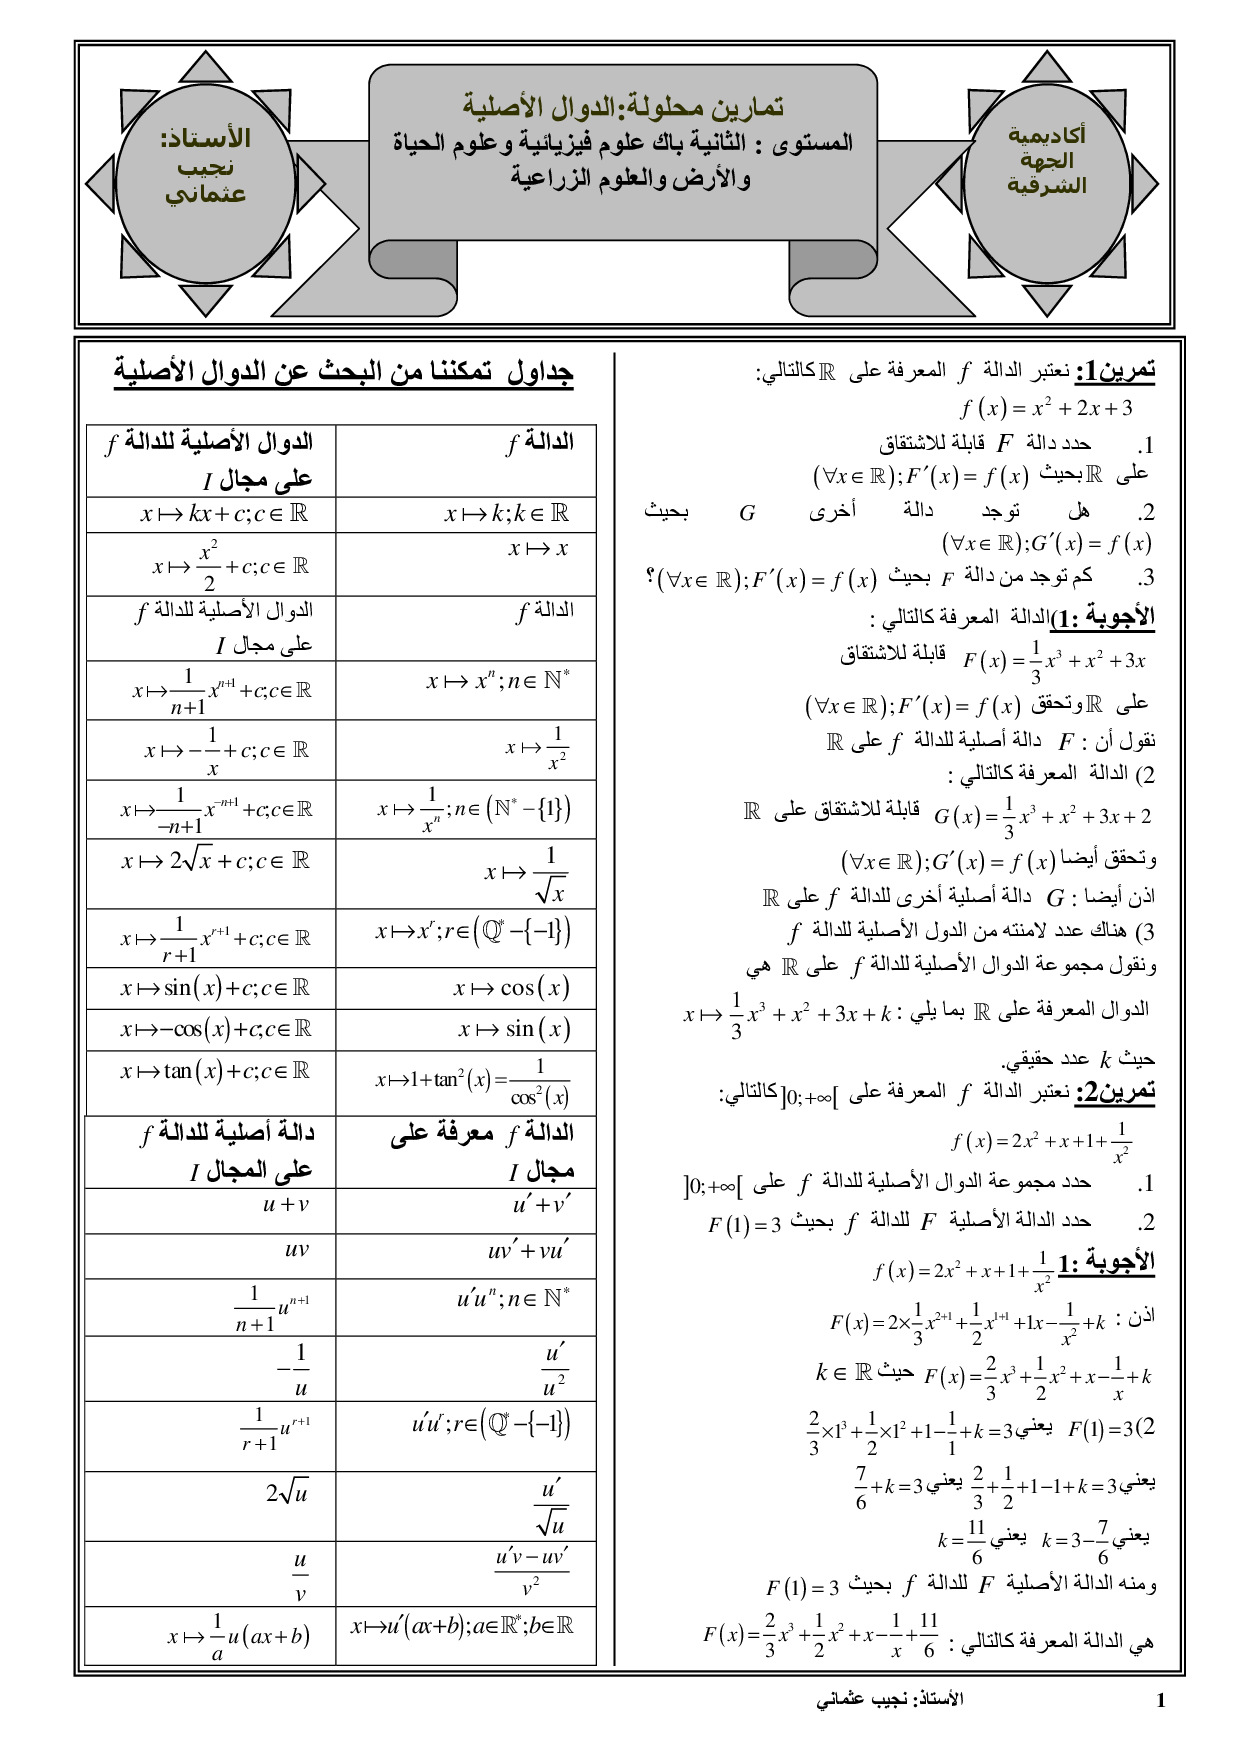 أكاديمية
الجهة
الشرقية
تمارين محلولة:الدوال الأصلية
المستوى : الثانية باك علوم فيزيائية وعلوم الحياة
والأرض والعلوم الزراعية
الأستاذ:
نجيب
عثماني
تمرين1: نعتبر الدالة f المعرفة على ℝ كالتالي:
f(x) = x² + 2x + 3
1. حدد دالة F قابلة للاشتقاق
على ℝ بحيث (∀x∈ℝ); F′(x) = f(x)
2. هل توجد دالة أخرى G بحيث
(∀x∈ℝ); G′(x) = f(x)
3. كم توجد من دالة F بحيث (∀x∈ℝ); F′(x) = f(x)؟
الأجوبة :1)الدالة المعرفة كالتالي :
F(x) = 1/3 x³ + x² + 3x قابلة للاشتقاق
على ℝ وتحقق (∀x∈ℝ); F′(x) = f(x)
نقول أن : F دالة أصلية للدالة f على ℝ
2) الدالة المعرفة كالتالي :
G(x) = 1/3 x³ + x² + 3x + 2 قابلة للاشتقاق على ℝ
وتحقق أيضا (∀x∈ℝ); G′(x) = f(x)
اذن أيضا : G دالة أصلية أخرى للدالة f على ℝ
3) هناك عدد لامنته من الدول الأصلية للدالة f
ونقول مجموعة الدوال الأصلية للدالة f على ℝ هي
الدوال المعرفة على ℝ بما يلي : x ↦ 1/3 x³ + x² + 3x + k
حيث k عدد حقيقي.
تمرين2: نعتبر الدالة f المعرفة على ]0;+∞[ كالتالي:
f(x) = 2x² + x + 1 + 1/x²
1. حدد مجموعة الدوال الأصلية للدالة f على ]0;+∞[
2. حدد الدالة الأصلية F للدالة f بحيث F(1) = 3
الأجوبة :1 f(x) = 2x² + x + 1 + 1/x²
اذن : F(x) = 2×1/3 x²⁺¹ + 1/2 x¹⁺¹ + 1x − 1/x² + k
F(x) = 2/3 x³ + 1/2 x² + x − 1/x + k حيث k ∈ ℝ
2) F(1) = 3 يعني 2/3 ×1³ + 1/2 ×1² + 1 − 1/1 + k = 3
يعني 2/3 + 1/2 + 1 − 1 + k = 3 يعني 7/6 + k = 3
يعني k = 3 − 7/6 يعني k = 11/6
ومنه الدالة الأصلية F للدالة f بحيث F(1) = 3
هي الدالة المعرفة كالتالي : F(x) = 2/3 x³ + 1/2 x² + x − 1/x + 11/6
جداول تمكننا من البحث عن الدوال الأصلية
الدالة f
الدوال الأصلية للدالة f
على مجال I
x ↦ k; k∈ℝ
x ↦ kx + c; c∈ℝ
x ↦ x
x ↦ x²/2 + c; c∈ℝ
الدالة f
الدوال الأصلية للدالة f
على مجال I
x ↦ xⁿ; n∈ℕ*
x ↦ 1/(n+1) xⁿ⁺¹ + c; c∈ℝ
x ↦ 1/x²
x ↦ −1/x + c; c∈ℝ
x ↦ 1/xⁿ; n∈(ℕ* − {1})
x ↦ 1/(−n+1) x⁻ⁿ⁺¹ + c; c∈ℝ
x ↦ 1/√x
x ↦ 2√x + c; c∈ℝ
x ↦ xʳ; r∈(ℚ* − {−1})
x ↦ 1/(r+1) xʳ⁺¹ + c; c∈ℝ
x ↦ cos(x)
x ↦ sin(x) + c; c∈ℝ
x ↦ sin(x)
x ↦ −cos(x) + c; c∈ℝ
x ↦ 1 + tan²(x) = 1/cos²(x)
x ↦ tan(x) + c; c∈ℝ
الدالة f معرفة على
مجال I
دالة أصلية للدالة f
على المجال I
u′ + v′
u + v
uv′ + vu′
uv
u′uⁿ; n∈ℕ*
1/(n+1) uⁿ⁺¹
u′/u²
−1/u
u′uʳ; r∈(ℚ* − {−1})
1/(r+1) uʳ⁺¹
u′/√u
2√u
(u′v − uv′)/v²
u/v
x ↦ u′(ax+b); a∈ℝ*; b∈ℝ
x ↦ 1/a u(ax+b)
الأستاذ: نجيب عثماني
1